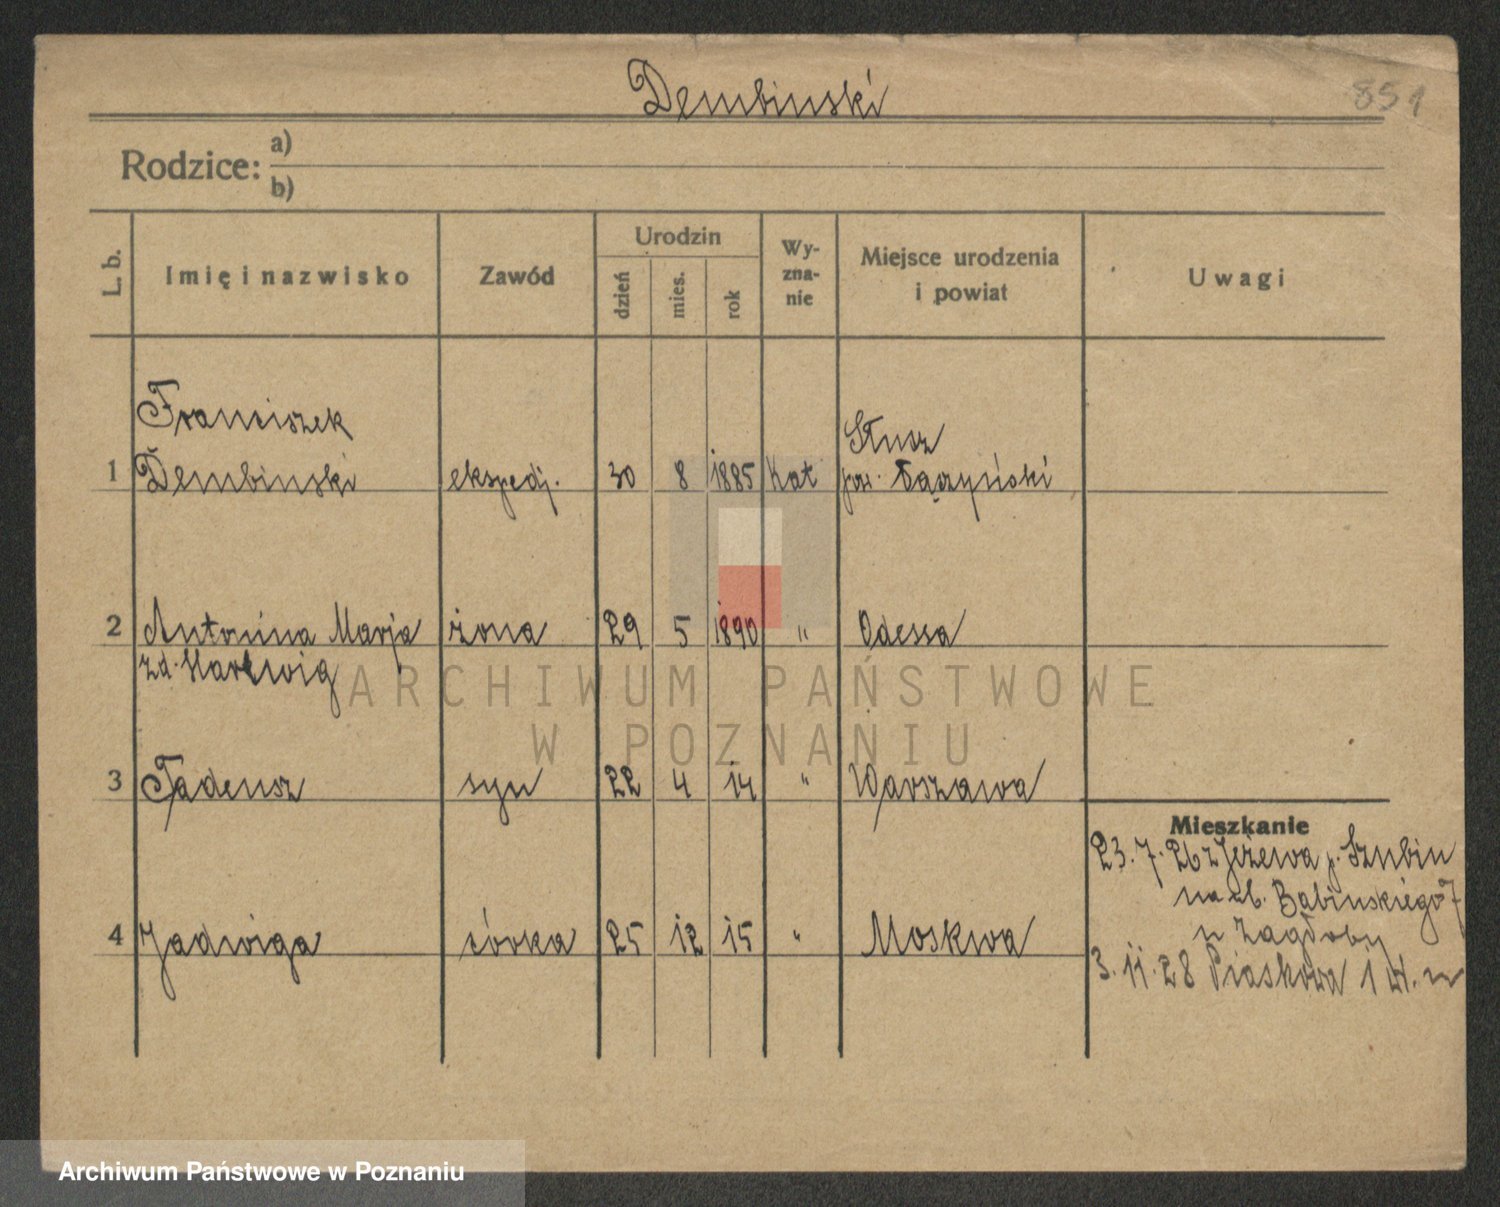 Dembinski
851
Rodzice: a)
b)
L. b.
Imię i nazwisko
Zawód
Urodzin
dzień
mies.
rok
Wy-
zna-
nie
Miejsce urodzenia
i powiat
Uwagi
Franciszek
1 Dembinski ekspedj. 30 8 1885 Kat
pow. Łączyński
2 Antonina Marja żona 29 5 1890 " Odessa
zd. Hartwig
3 Tadeusz syn 22 4 14 " Warszawa
Mieszkanie
23. 7. 26 z Jeżewa p. Szubin
na ul. Babinskiego 7
u Zagłoby
4 Jadwiga córka 25 12 15 " Moskwa
3. 11. 28 Piaskowa 1
ARCHIWUM PAŃSTWOWE
W POZNANIU
Archiwum Państwowe w Poznaniu